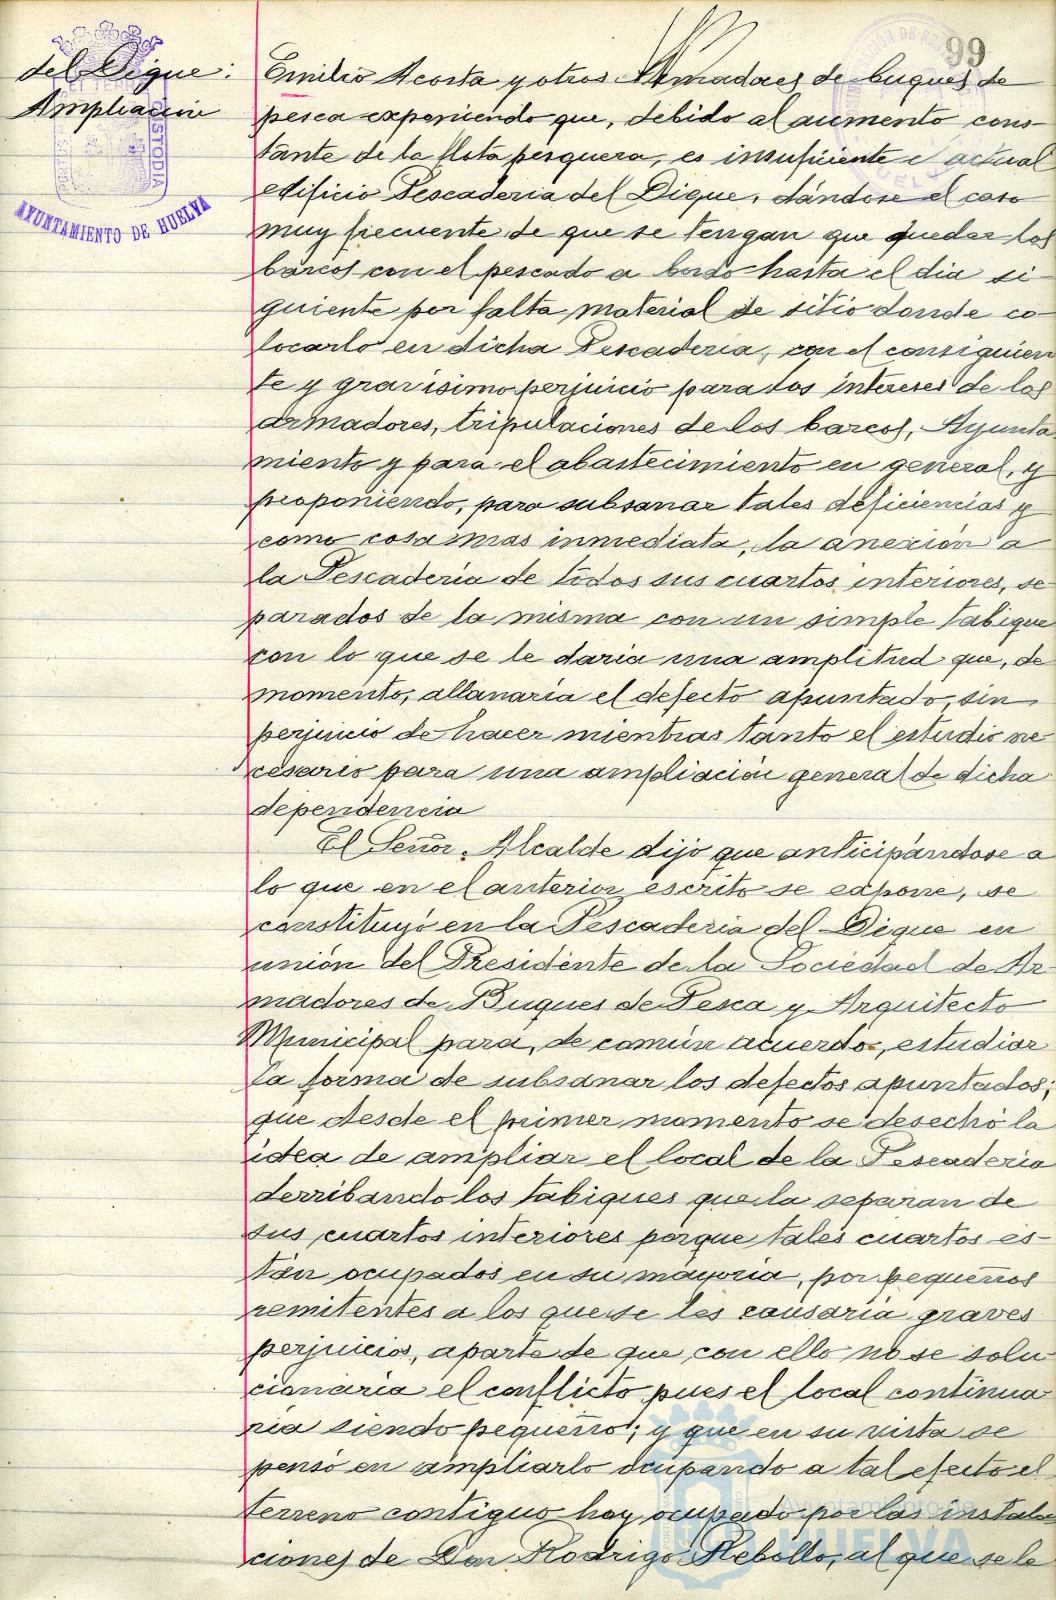 99
del Dique:
Ampliación
AYUNTAMIENTO DE HUELVA
Emilio Acosta y otros Armadores de buques de
pesca exponiendo que, debido al aumento cons-
tante de la flota pesquera, es insuficiente el actual
edificio Pescaderia del Dique, dándose el caso
muy frecuente de que se tengan que quedar los
barcos con el pescado a bordo hasta el dia si-
guiente por falta material de sitio donde co-
locarlo en dicha Pescaderia, con el consiguien-
te y gravísimo perjuicio para los intereses de los
armadores, tripulaciones de los barcos, Ayunta-
miento y para el abastecimiento en general, y
proponiendo, para subsanar tales deficiencias y
como cosa mas inmediata, la anexión a
la Pescaderia de todos sus cuartos interiores, se-
parados de la misma con un simple tabique
con lo que se le daria una amplitud que, de
momento, allanaria el defecto apuntado, sin
perjuicio de hacer mientras tanto el estudio ne-
cesario para una ampliación general de dicha
dependencia
El Señor Alcalde dijo que anticipándose a
lo que en el anterior escrito se expone, se
constituyó en la Pescaderia del Dique en
unión del Presidente de la Sociedad de Ar-
madores de Buques de Pesca y Arquitecto
Municipal para, de común acuerdo, estudiar
la forma de subsanar los defectos apuntados;
que desde el primer momento se desechó la
idea de ampliar el local de la Pescaderia
derribando los tabiques que la separan de
sus cuartos interiores porque tales cuartos es-
tán ocupados en su mayoria, por pequeños
remitentes a los que se les causaria graves
perjuicios, aparte de que con ello no se solu-
cionaria el conflicto pues el local continua-
ria siendo pequeño; y que en su vista se
pensó en ampliarlo ocupando a tal efecto el
terreno contiguo hoy ocupado por las instala-
ciones de Don Rodrigo Rebollo, al que se le
Ayuntamiento de
HUELVA